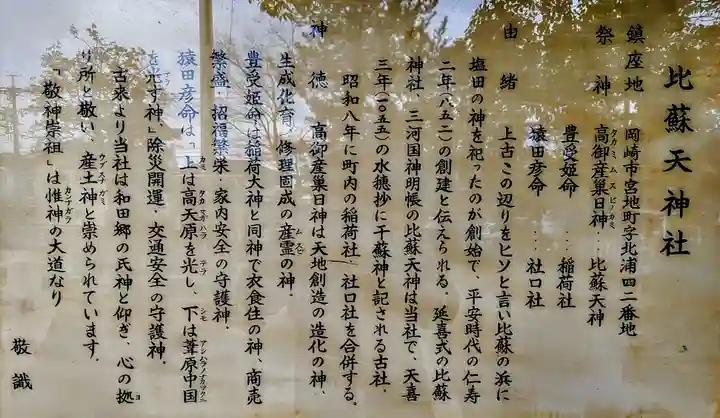 比蘇天神社
鎮座地　岡崎市宮地町字北浦四二番地
祭神　高御産巣日神　‥‥　比蘇天神
タカミムスビノカミ
豊受姫命　‥‥　稲荷社
猿田彦命　‥‥　社口社
由緒　上古この辺りをヒソと言い比蘇の浜に
塩田の神を祀ったのが創始で、平安時代の仁寿
二年（八五二）の創建と伝えられる．延喜式の比蘇
神社、三河国神明帳の比蘇天神は当社で、天喜
三年（一〇五五）の水穂抄に千蘇神と記される古社．
昭和八年に町内の稲荷社、社口社を合併する。
神徳　高御産巣日神は天地創造の造化の神、
生成化育、修理固成の産霊の神．
ムスビ
豊受姫命は稲荷大神と同神で衣食住の神、商売
繁盛、招福繁栄・家内安全の守護神．
猿田彦命は「上は高天原を光し、下は葦原中国
カミ　タカマガハラ　テラ　シモ　アシハラノナカツクニ
を光す神」除災開運・交通安全の守護神．
古来より当社は和田郷の氏神と仰ぎ、心の拠
ヨ
り所と敬い、産土神と崇められています．
ウブスナガミ
「敬神崇祖」は惟神の大道なり
カンナガラ
敬識